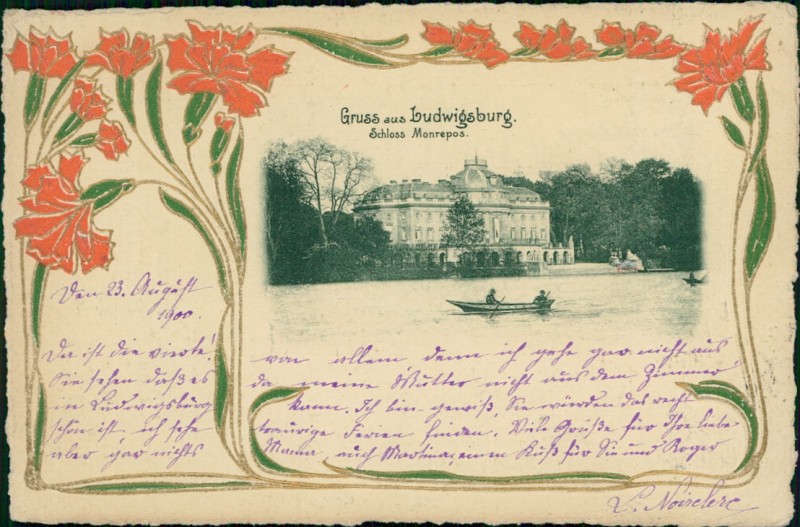 Gruss aus Ludwigsburg.
Schloss Monrepos.
Den 23. August
1900.
Da ist die vierte!
Sie sehen daß es
in Ludwigsburg
schön ist, ich sehe
aber gar nichts
von allem denn ich gehe gar nicht aus
da meine Mutter nicht aus dem Zimmer
kann. Ich bin gewiß, Sie würden das recht
traurige Ferien finden. Viele Grüße für Ihre liebe
Mama, auch Martina, einen Kuß für Sie und Roger
L. Noirclerc